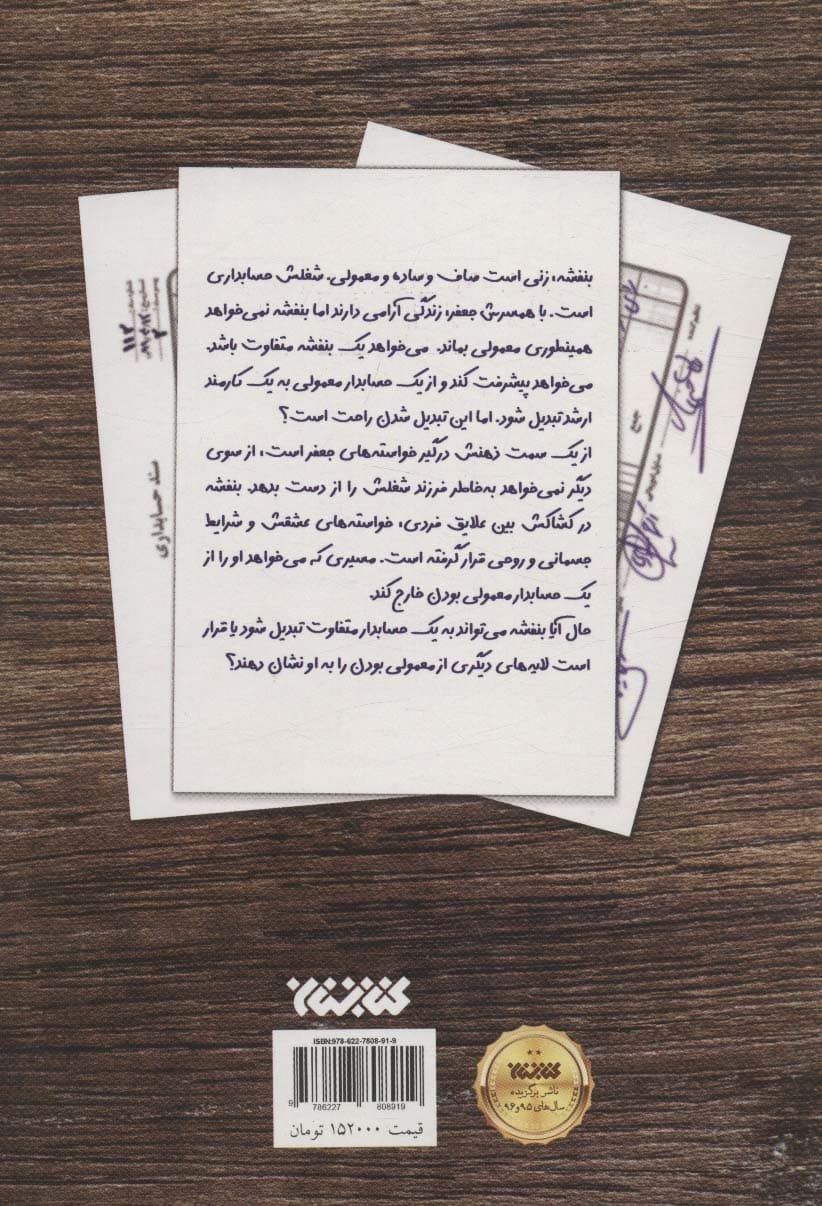 بنفشه، زنی است صاف و ساده و معمولی. شغلش حسابداری
است. با همسرش جعفر، زندگی آرامی دارند اما بنفشه نمی‌خواهد
همینطوری معمولی بماند. می‌خواهد یک بنفشه متفاوت باشد.
می‌خواهد پیشرفت کند و از یک حسابدار معمولی به یک کارمند
ارشد تبدیل شود. اما این تبدیل شدن راحت است؟
از یک سمت ذهنش درگیر خواسته‌های جعفر است، از سوی
دیگر نمی‌خواهد به‌خاطر فرزند شغلش را از دست بدهد. بنفشه
در کشاکش بین علایق فردی، خواسته‌های عشقش و شرایط
جسمانی و روحی قرار گرفته است. مسیری که می‌خواهد او را از
یک حسابدار معمولی بودن خارج کند.
حال آیا بنفشه می‌تواند به یک حسابدار متفاوت تبدیل شود یا قرار
است لایه‌های دیگری از معمولی بودن را به او نشان دهند؟
سند حسابداری
۱۱۲
کتابستان
ISBN:978-622-7808-91-9
9 786227 808919
قیمت ۱۵۲۰۰۰ تومان
کتابستان
ناشر برگزیده
سال‌های ۹۵ و ۹۶